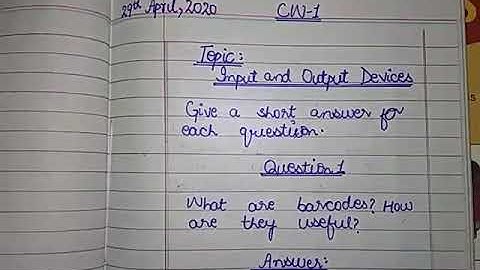 29th April, 2020 CW-1
Topic:
Input and Output Devices
Give a short answer for
each question.
Question 1
What are barcodes? How
are they useful?
Answer: